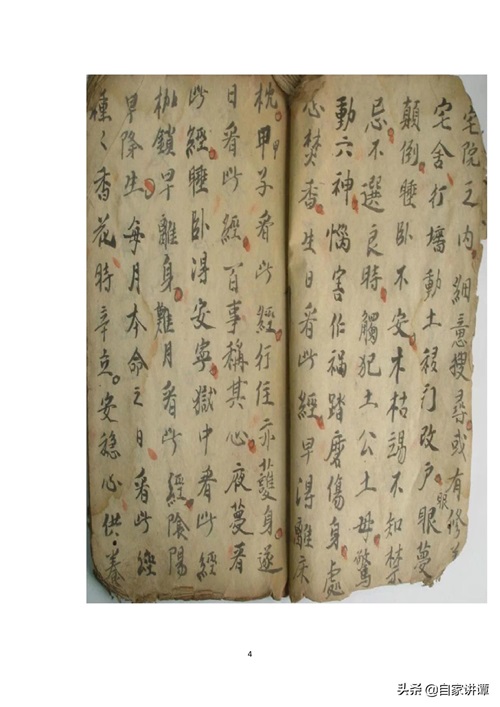 宅院之内細意搜尋或有修
宅舍行墻動土移门改户眼夢
顛倒睡卧不安木枯竭不知禁
忌不選良時觸犯土公土母驚
動六神惱害仁禍踏磨傷身處
心焚香生日看此經早淂離床
枕甲子看此經行住亦護身逐
日看此經百事稱其心夜夢看
此經睡卧淂安寧獄中看此經
枷鎖早離身難月看此經陰陽
早降生每月本命之日看此經
種々香花時辛立安稳心供養
4
头条 @自家讲谭